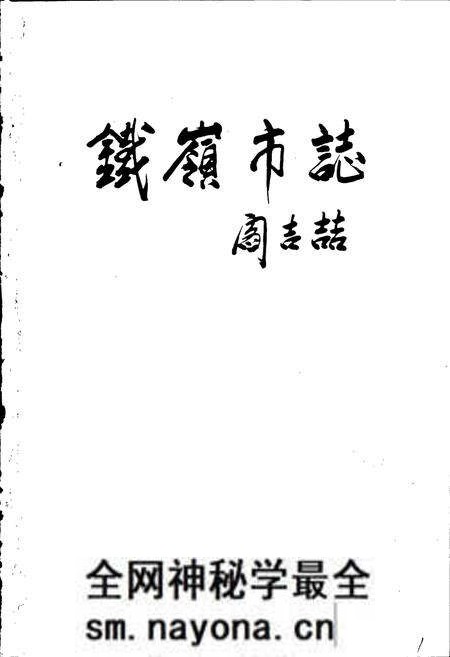 鐵嶺市誌
閻吉喆
全网神秘学最全
sm.nayona.cn
1